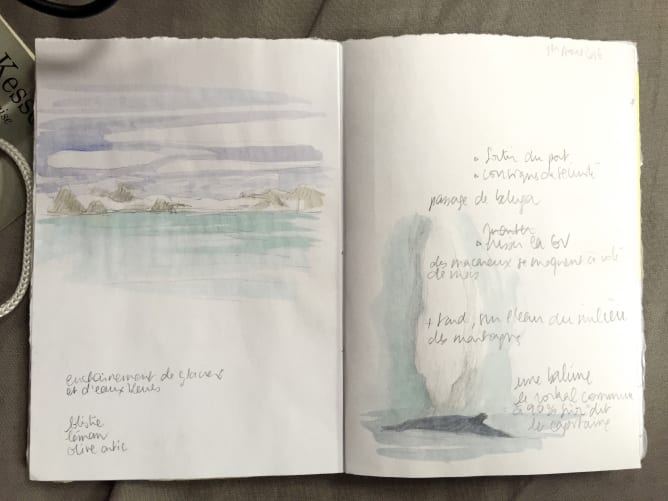 Kess
enchaînement de glaciers
et d'eaux
léman
olive artic
• Sortir du port
• consignes de sécurité
passage de beluga
• hisser la GV
des macareux se moquent à coté
de nous
+ tard, sur l'eau au milieu
des montagnes
une baleine
le rorqual commun
à 99% sûr dit
le capitaine